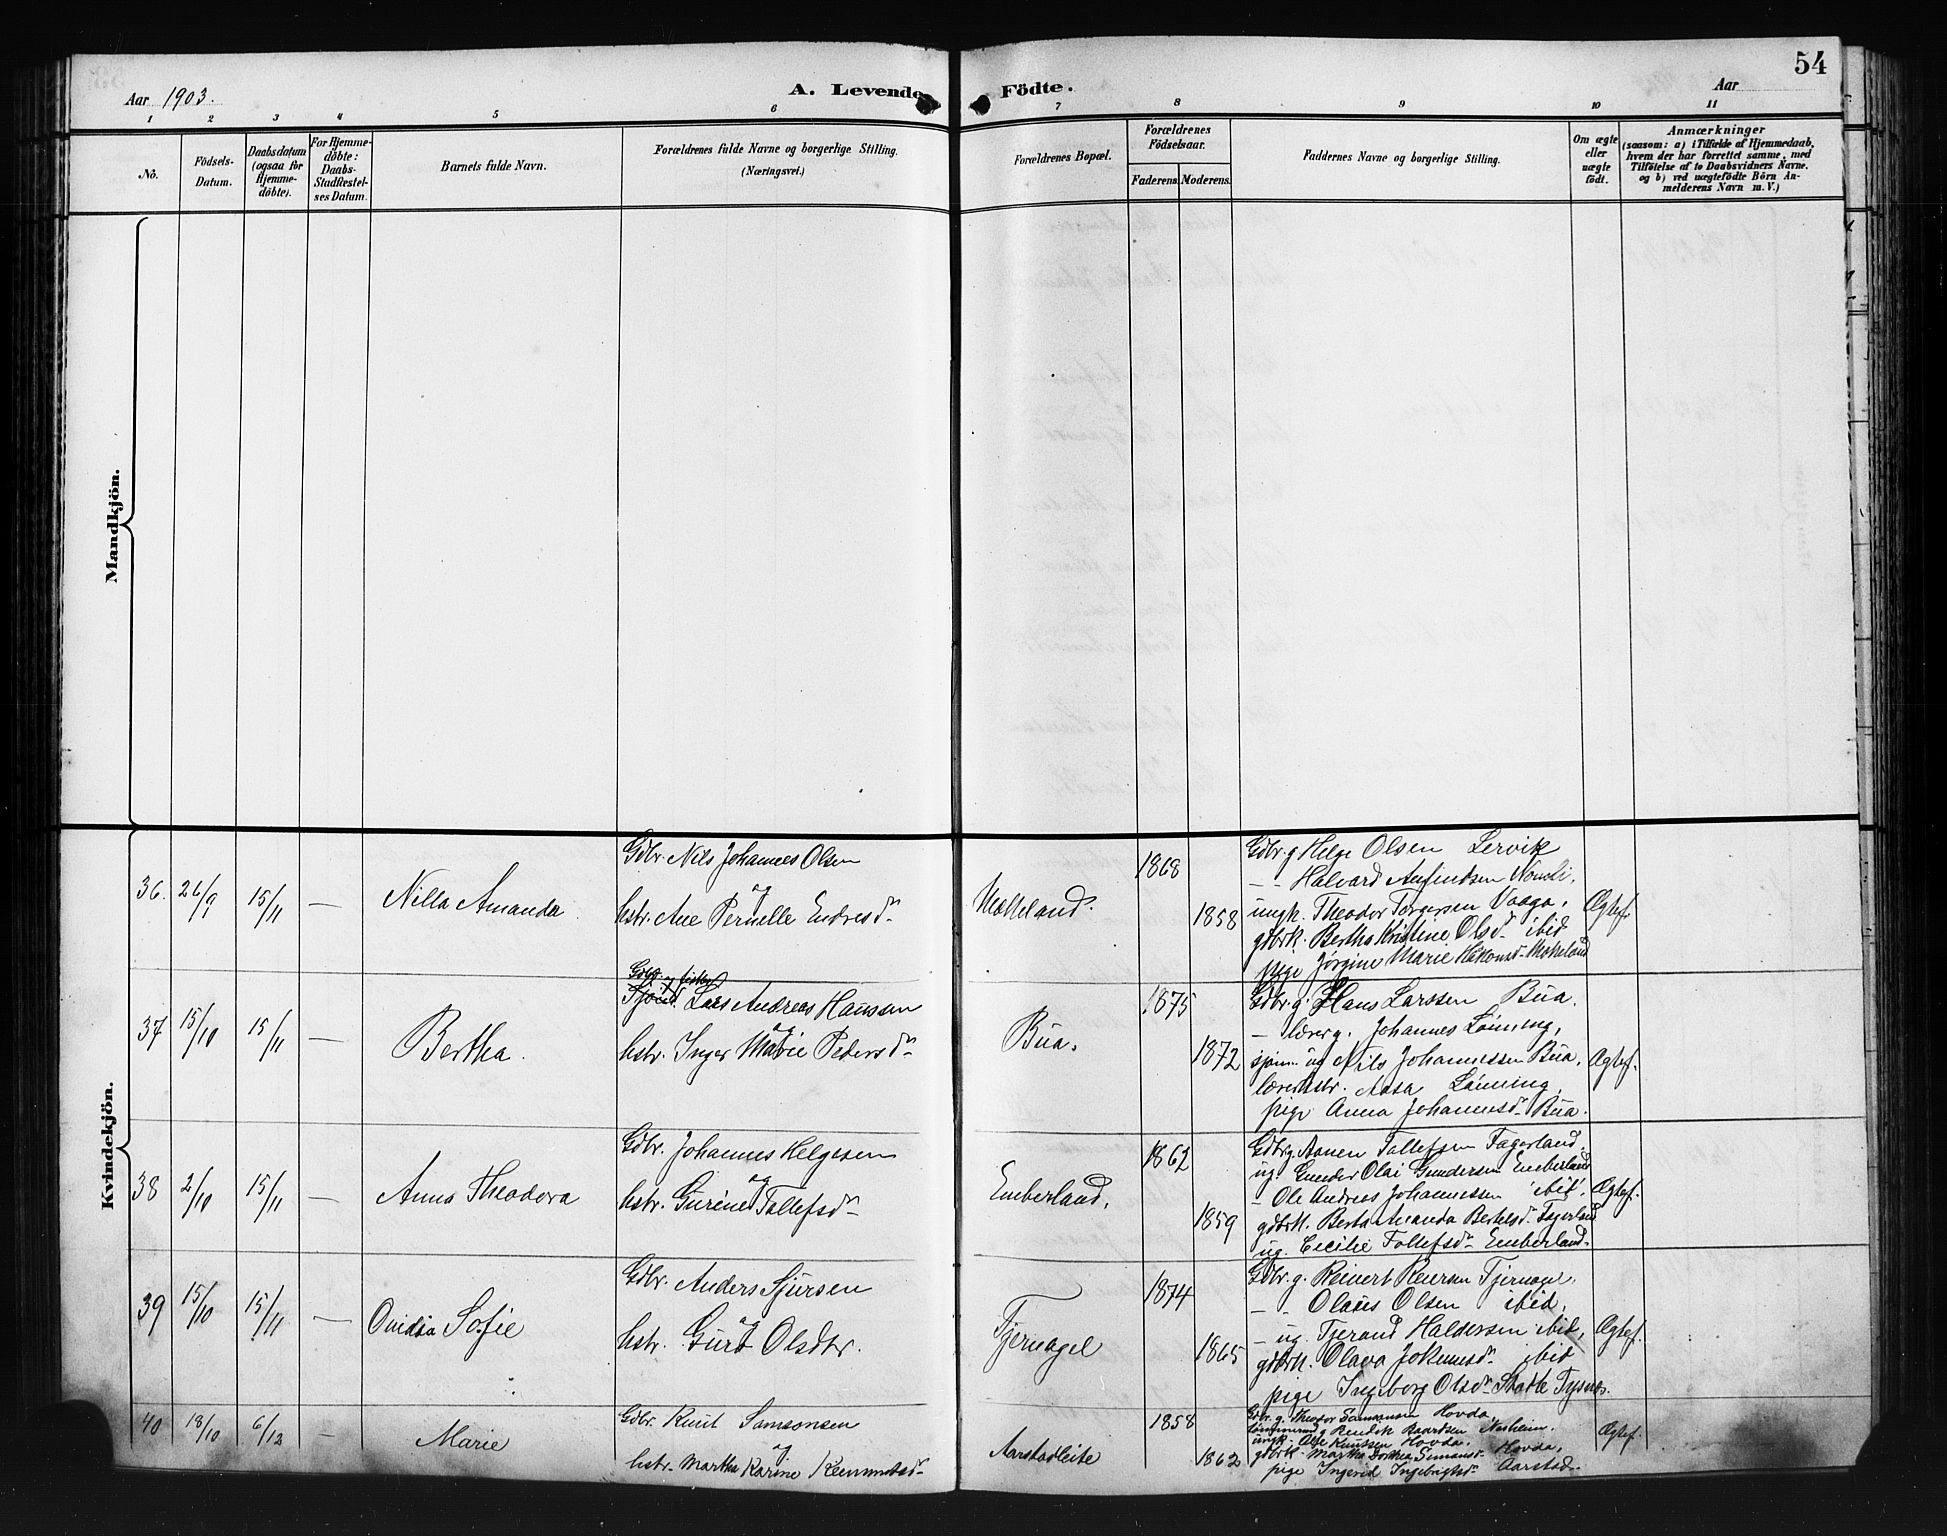 54
Aar 1903.
A. Levende Födte.
Aar
1 2 3 4 5 6 7 8 9 10 11
No.
Födsels-Datum.
Daabsdatum (ogsaa for Hjemme-döbte).
For Hjemme-döbte: Daabs-Stadfæstel-ses Datum.
Barnets fulde Navn.
Forældrenes fulde Navne og borgerlige Stilling.
(Næringsvei.)
Forældrenes Bopæl.
Forældrenes Födselsaar.
Faderens. Moderens.
Faddernes Navne og borgerlige Stilling.
Om ægte eller uægte födt.
Anmærkninger
(saasom: a) i Tilfælde af Hjemmedaab, hvem der har forrettet samme, med Tilföielse af to Daabsvidners Navne, og b) ved uægtefödte Börn An-melderens Navn m. V.)
Mandkjön.
Kvindekjön.
36. 26/9 15/11 — Nilla Amanda
Gdbr. Nils Johannes Olsen
og
hstr. Ane Pernelle Endresdr
1868
1858
Gdbr. g Helge Olsen Lervik
— - Halvard
ungk. Theodor Torgersen Vaaga,
gdbrk. Bertha Kristine Olsdr ibid
pige Jørgine Marie
Ægtef.
37 15/10 15/11 — Bertha.
Gdbr. og fisker
Lars Andreas Hanssen
og
hstr. Inger Marie Pedersdr
Bua.
1875
1872
Gdbr. g. Hans Larssen Bua.
— lærer g. Johannes Lønning,
sjøm. ug Nils Johannessen Bua.
lærerhstr. Aasa Lønning,
pige Anna Johannesdr Bua.
Ægtef.
38 2/10 15/11 — Anna Theodora
Gdbr. Johannes Helgesen
og
hstr. Gurine Tollefsdr
Emberland.
1862
1859
Gdbr g. Aanen Tollefsen Fagerland.
ug. Gunder Olai Gundersen Emberland
— Ole Andreas Johannessen ibid,
gdbrk. Berta Amanda Bertelsdr Fagerland
ug. Cecilie Tollefsdr Emberland
Ægtef.
39 15/10 15/11 — Ovidia Sofie
Gdbr. Anders Sjursen
og
hstr. Guro Olsdtr.
Tjernagel
1874
1865
Gdbr. g. Reinert Tjernagel.
— - Olaus Olsen ibid,
— ug. Tjerand Haldorsen ibid,
gdbrk. Olava ibid
pige Ingeborg Olsdr Tysnes.
Ægtef.
40 18/10 6/12 — Marie
Gdbr. Knut Samsonsen
og
hstr. Martha Karine
Aarstadleite
1858
1862
Gdbr. g. Theodor Samsonsen Hovda,
g Baardsen Nesheim.
ungk. Ole Knutssen Hovda.
gdbrk. Martha Dorthea Simonsdr Hovda,
pige Ingerid Ingebrigtsdr Aarstad
Ægtef.